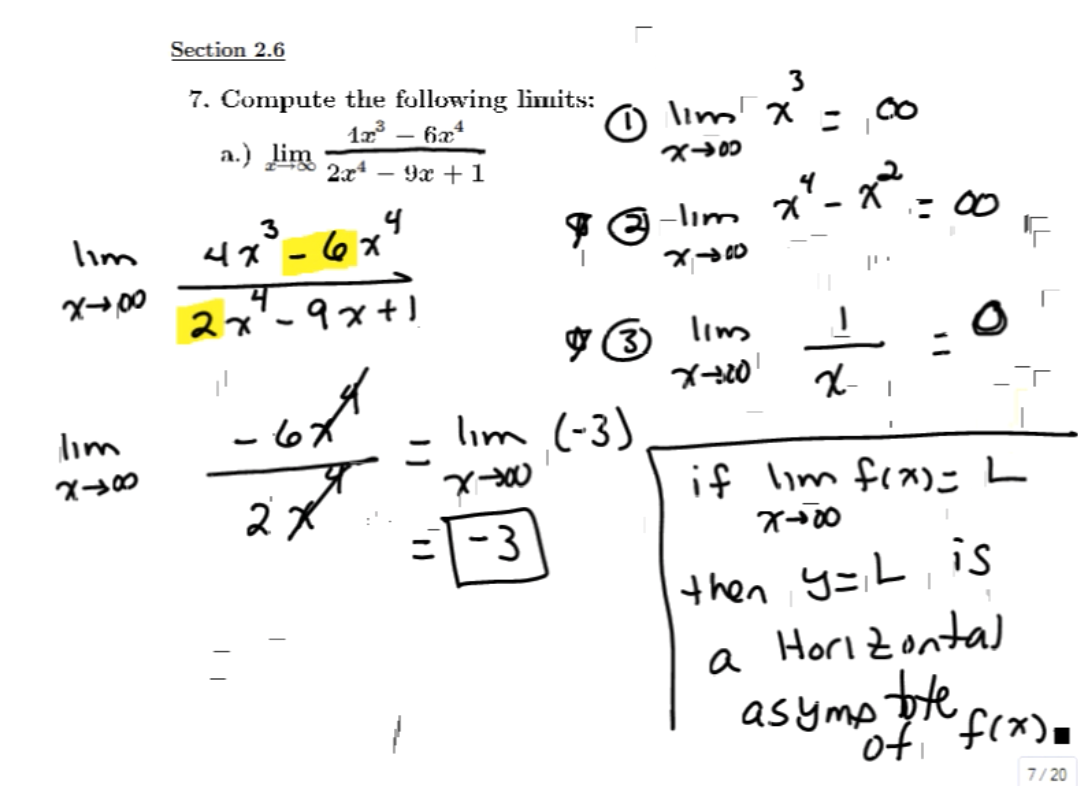 Section 2.6
7. Compute the following limits:
a.) lim x→∞ (4x³ − 6x⁴)/(2x⁴ − 9x + 1)
lim x→∞ (4x³ - 6x⁴)/(2x⁴ - 9x + 1)
lim x→∞ (-6x⁴)/(2x⁴) = lim x→∞ (-3)
= -3
① lim x→∞ x³ = ∞
② lim x→∞ x⁴ - x² = ∞
③ lim x→∞ 1/x = 0
if lim x→∞ f(x) = L
then y=L is
a Horizontal
asymptote
of f(x).
7 / 20